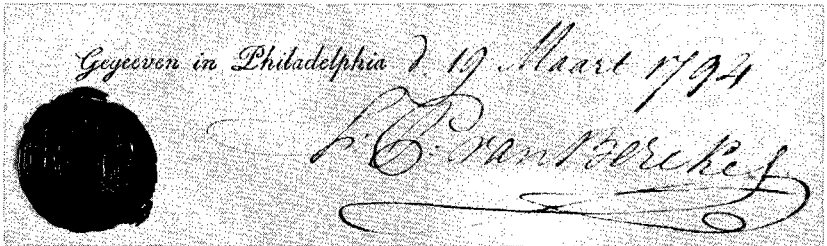 Gegeeven in Philadelphia d. 19 Maart 1794
F. P. van Berckel